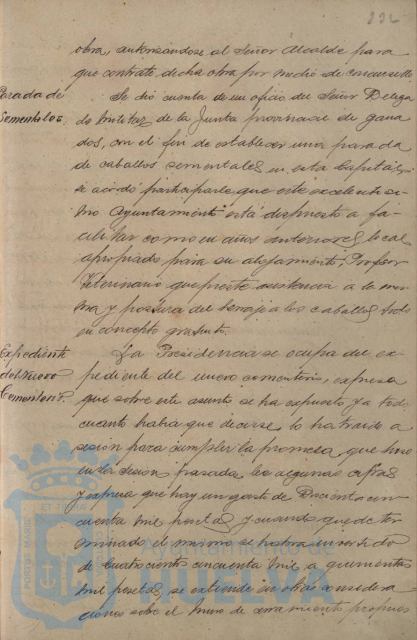 232
obra, autorizándose al Señor Alcalde para
que contrate dicha obra por medio de concurso
Parada de
Sementales.
Se dió cuenta de un oficio del Señor Delega
do militar de la Junta provincial de gana
dos, con el fin de establecer una parada
de caballos sementales en esta Capital y
se acordó participarle que este excelentísi-
mo Ayuntamiento está dispuesto a fa-
cilitar como en años anteriores, local
apropiado para su alojamiento, Profesor
Veterinario que preste asistencia a la mis-
ma y postura del herraje a los caballos, todo
en concepto gratuito.
Expediente
del Nuevo
Cementerio.
La Presidencia se ocupa del ex-
pediente del nuevo cementerio, expresa
que sobre este asunto se ha expuesto ya todo
cuanto había que decirse, lo ha traido a
sesión para cumplir la promesa que hizo
en la sesión pasada, lee algunas cifras
y expresa que hay un gasto de Doscientas cin-
cuenta mil pesetas y cuando quede ter-
minado el mismo se habrán invertido
de cuatrocientos cincuenta mil a quinientas
mil pesetas, se extiende en otras considera-
ciones sobre el muro de cerramiento propues
Ayuntamiento de
HUELVA